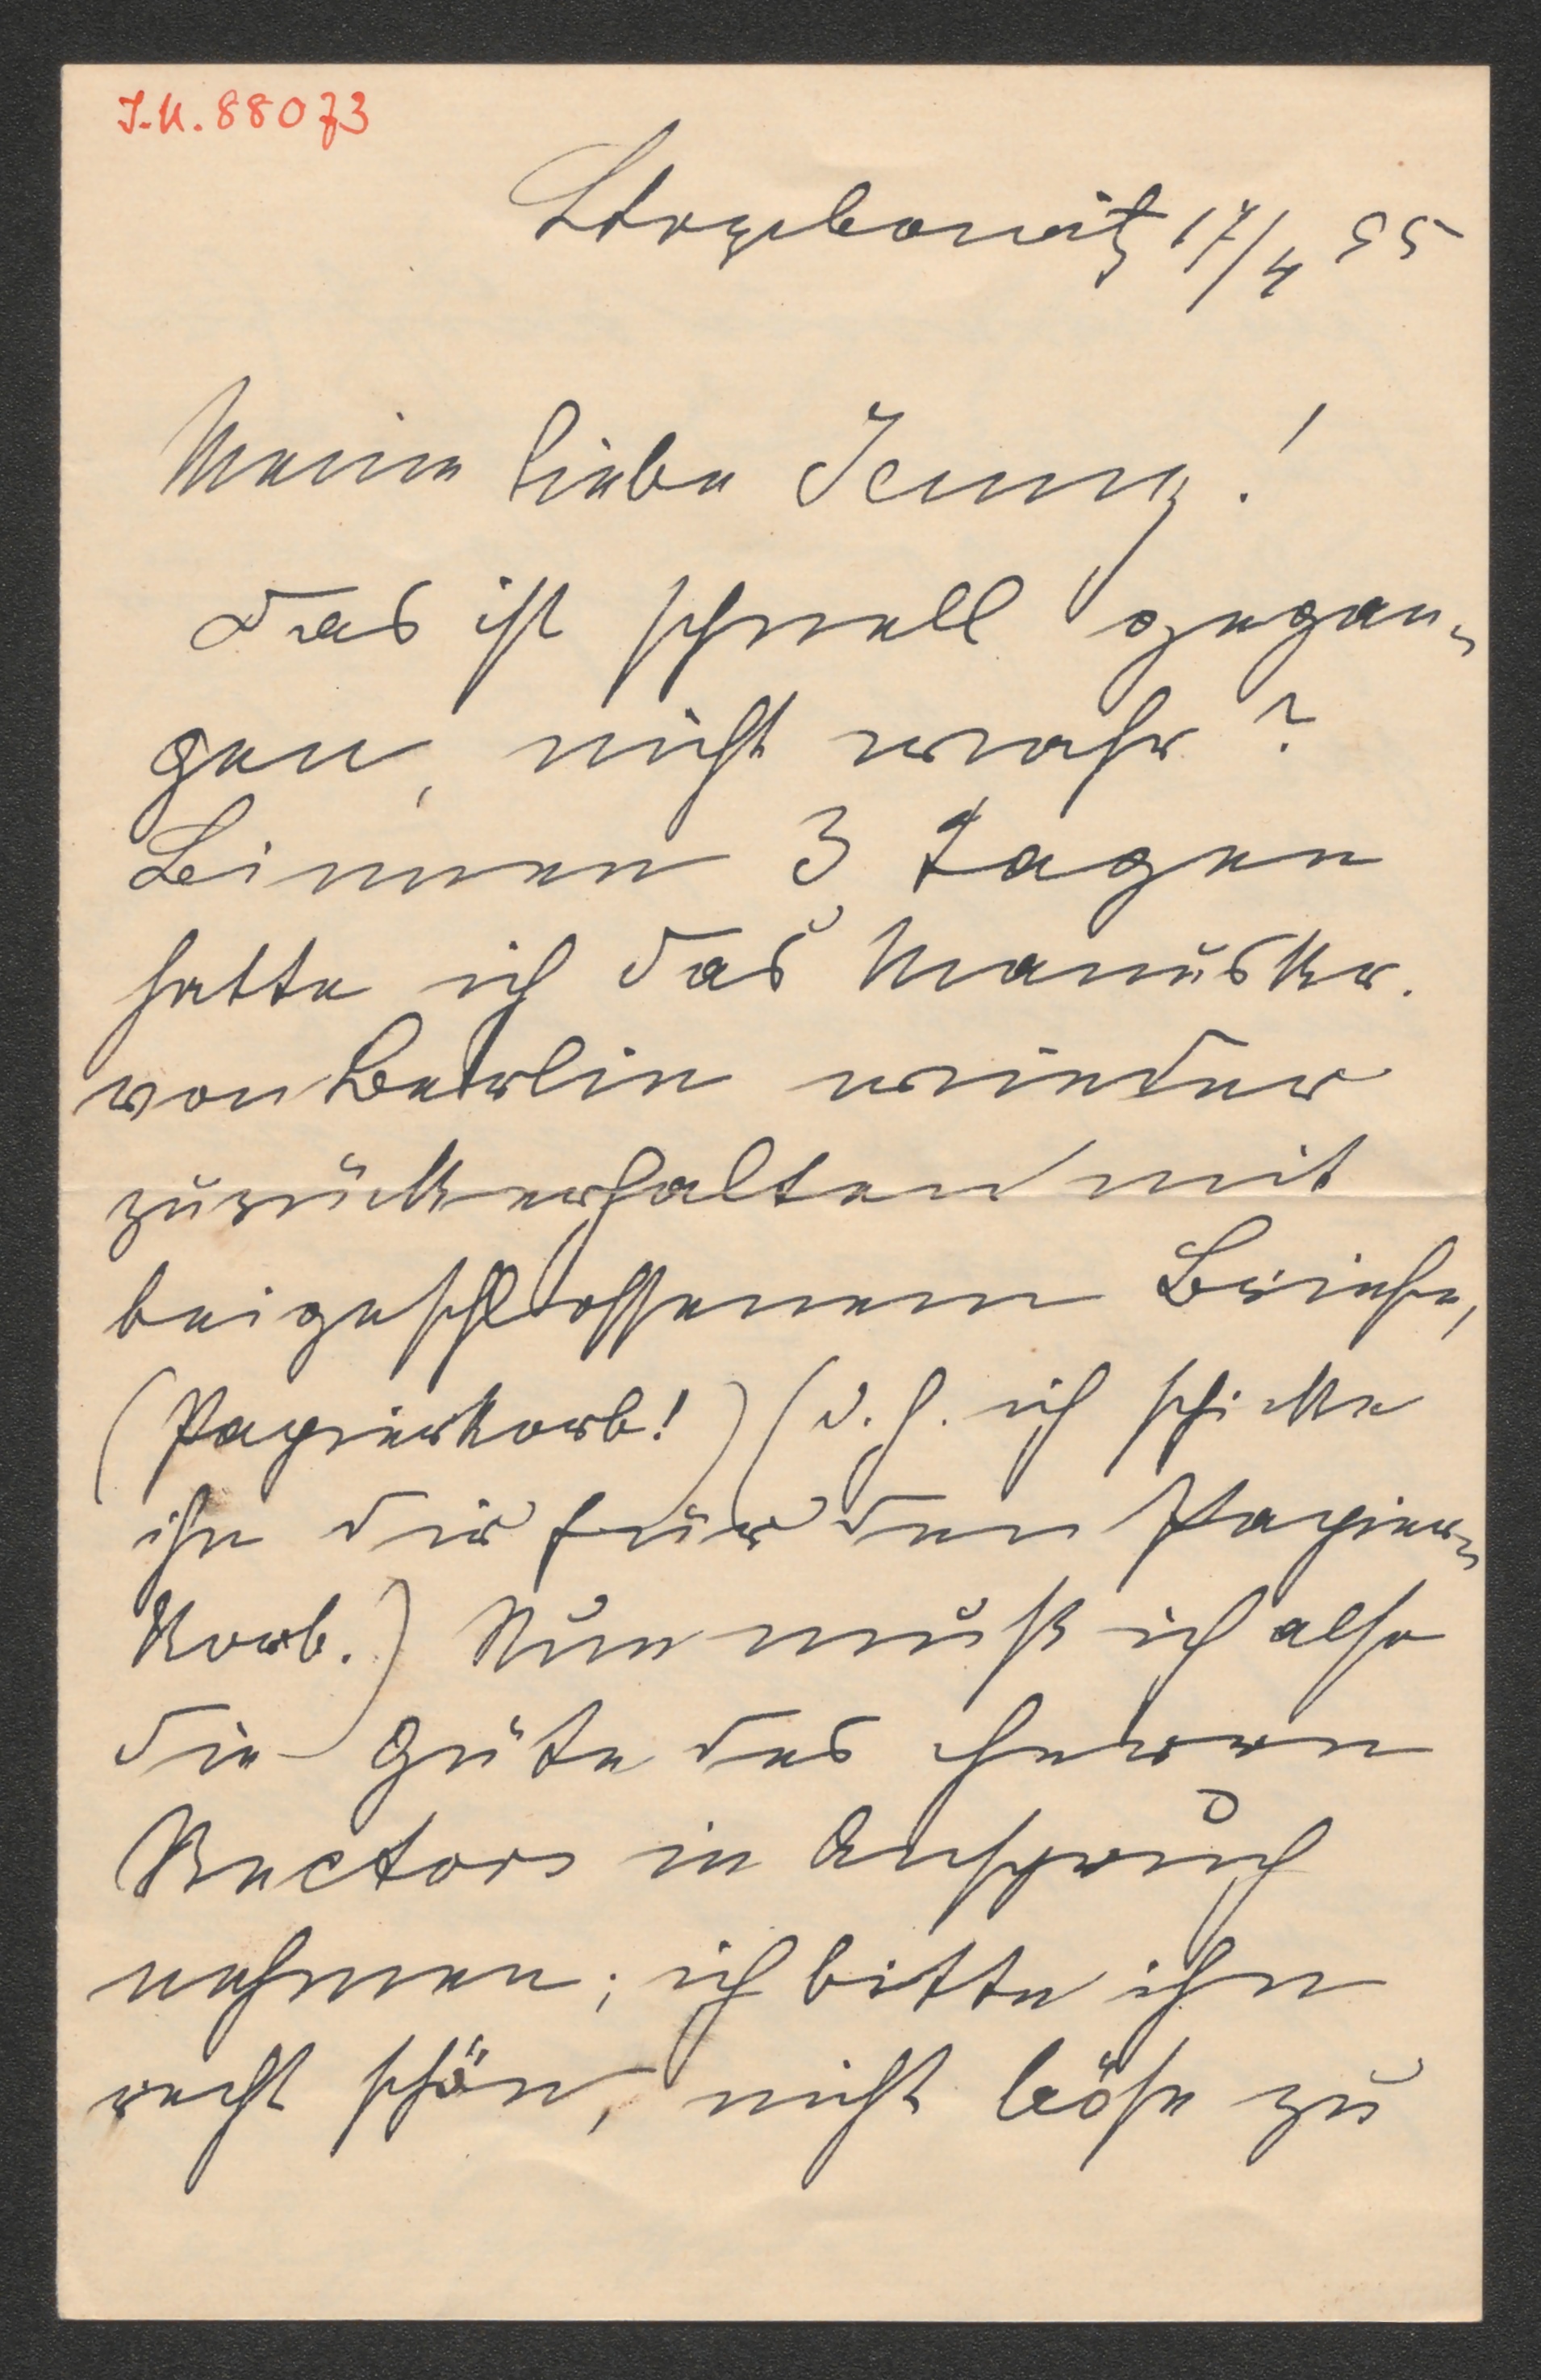 I.N. 88073
Strzebowitz 17/4 95
Meine liebe Jenny!
Das ist schnell gegan-
gen, nicht wahr?
Binnen 3 Tagen
hatte ich das Manuskr.
von Berlin wieder
zurückerhalten mit
beigeschlossenem Briefe,
(Papierkorb!) (d. h. ich schicke
ihn dir für den Papier-
korb.) Nun muß ich also
die Güte des Herrn
Rectors in Anspruch
nehmen; ich bitte ihn
recht schön, nicht böse zu